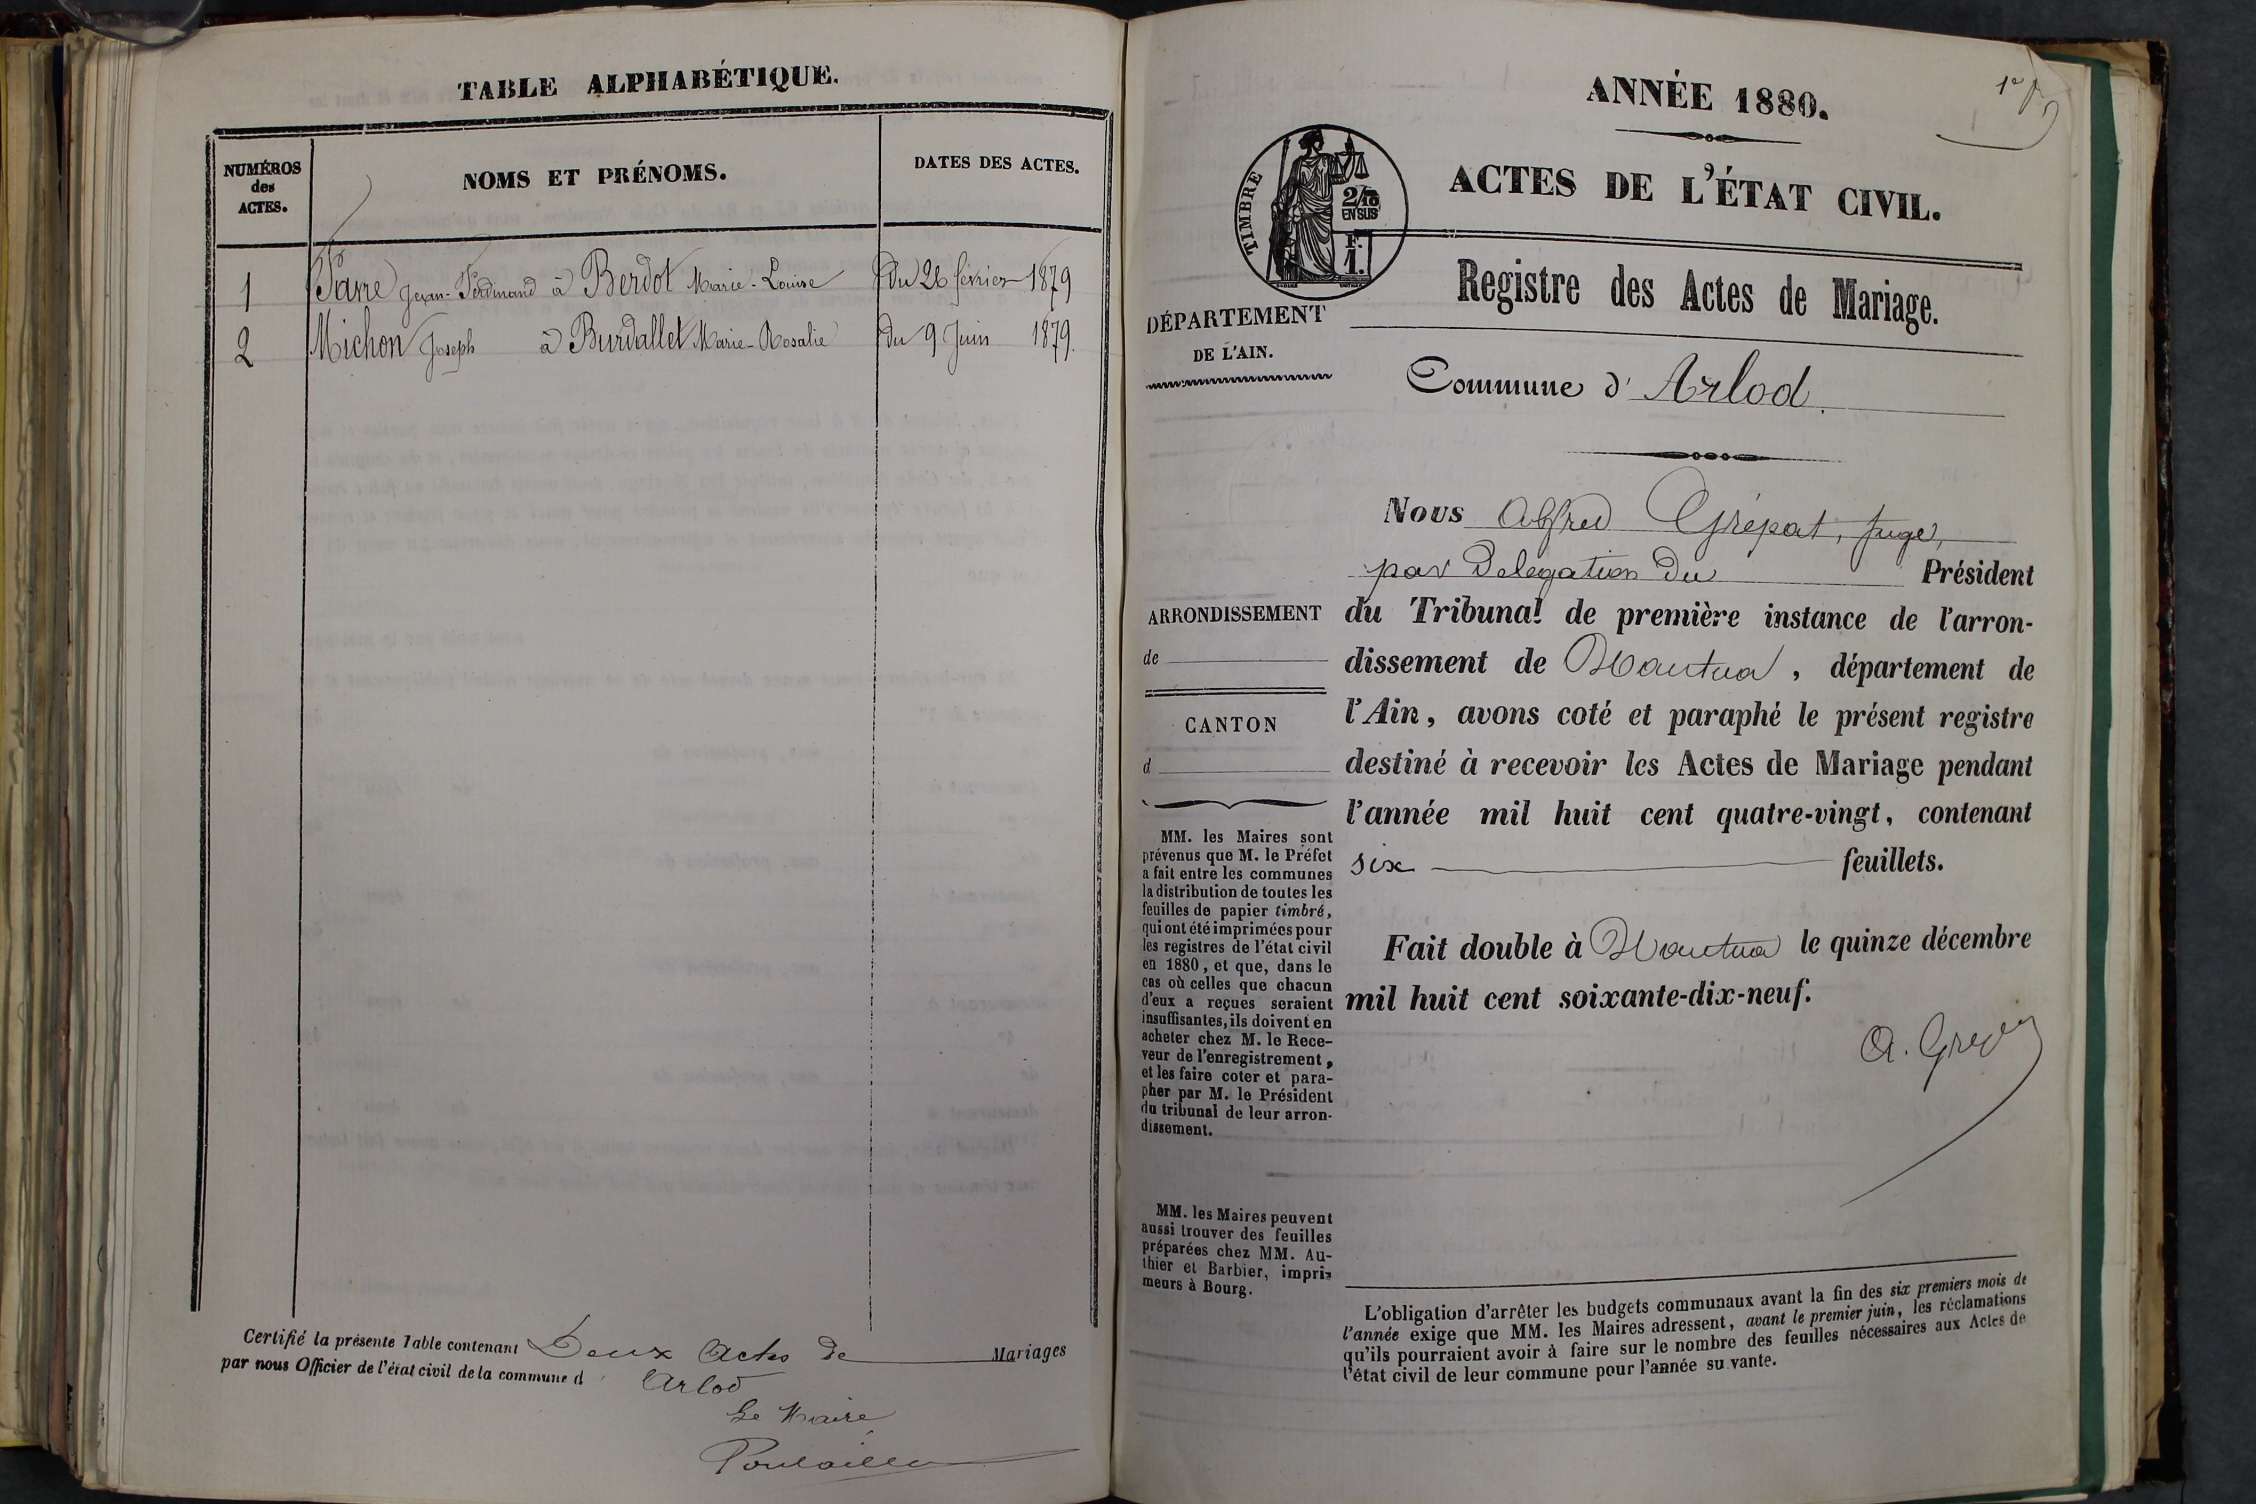 TABLE ALPHABÉTIQUE.
NUMÉROS des ACTES.
NOMS ET PRÉNOMS.
DATES DES ACTES.
1 Favre Jean-Ferdinand à Berdot Marie-Louise du 26 février 1879
2 Michon Joseph à Burdallet Marie-Rosalie du 9 Juin 1879.
Certifié la présente Table contenant Deux Actes de Mariages
par nous Officier de l'état civil de la commune d Arlod
Le Maire
ANNÉE 1880.
ACTES DE L'ÉTAT CIVIL.
TIMBRE
2/10
EN SUS
F.
1.
Registre des Actes de Mariage.
DÉPARTEMENT
DE L'AIN.
Commune d'Arlod.
Nous Alfred Grépat, juge,
par Delegation du Président
du Tribunal de première instance de l'arron-
dissement de Nantua, département de
l'Ain, avons coté et paraphé le présent registre
destiné à recevoir les Actes de Mariage pendant
l'année mil huit cent quatre-vingt, contenant
six feuillets.
Fait double à Nantua le quinze décembre
mil huit cent soixante-dix-neuf.
ARRONDISSEMENT
de
CANTON
d
MM. les Maires sont
prévenus que M. le Préfet
a fait entre les communes
la distribution de toutes les
feuilles de papier timbré,
qui ont été imprimées pour
les registres de l'état civil
en 1880, et que, dans le
cas où celles que chacun
d'eux a reçues seraient
insuffisantes, ils doivent en
acheter chez M. le Rece-
veur de l'enregistrement,
et les faire coter et para-
pher par M. le Président
du tribunal de leur arron-
dissement.
MM. les Maires peuvent
aussi trouver des feuilles
préparées chez MM. Au-
thier et Barbier, impri-
meurs à Bourg.
L'obligation d'arrêter les budgets communaux avant la fin des six premiers mois de
l'année exige que MM. les Maires adressent, avant le premier juin, les réclamations
qu'ils pourraient avoir à faire sur le nombre des feuilles nécessaires aux Actes de
l'état civil de leur commune pour l'année suvante.